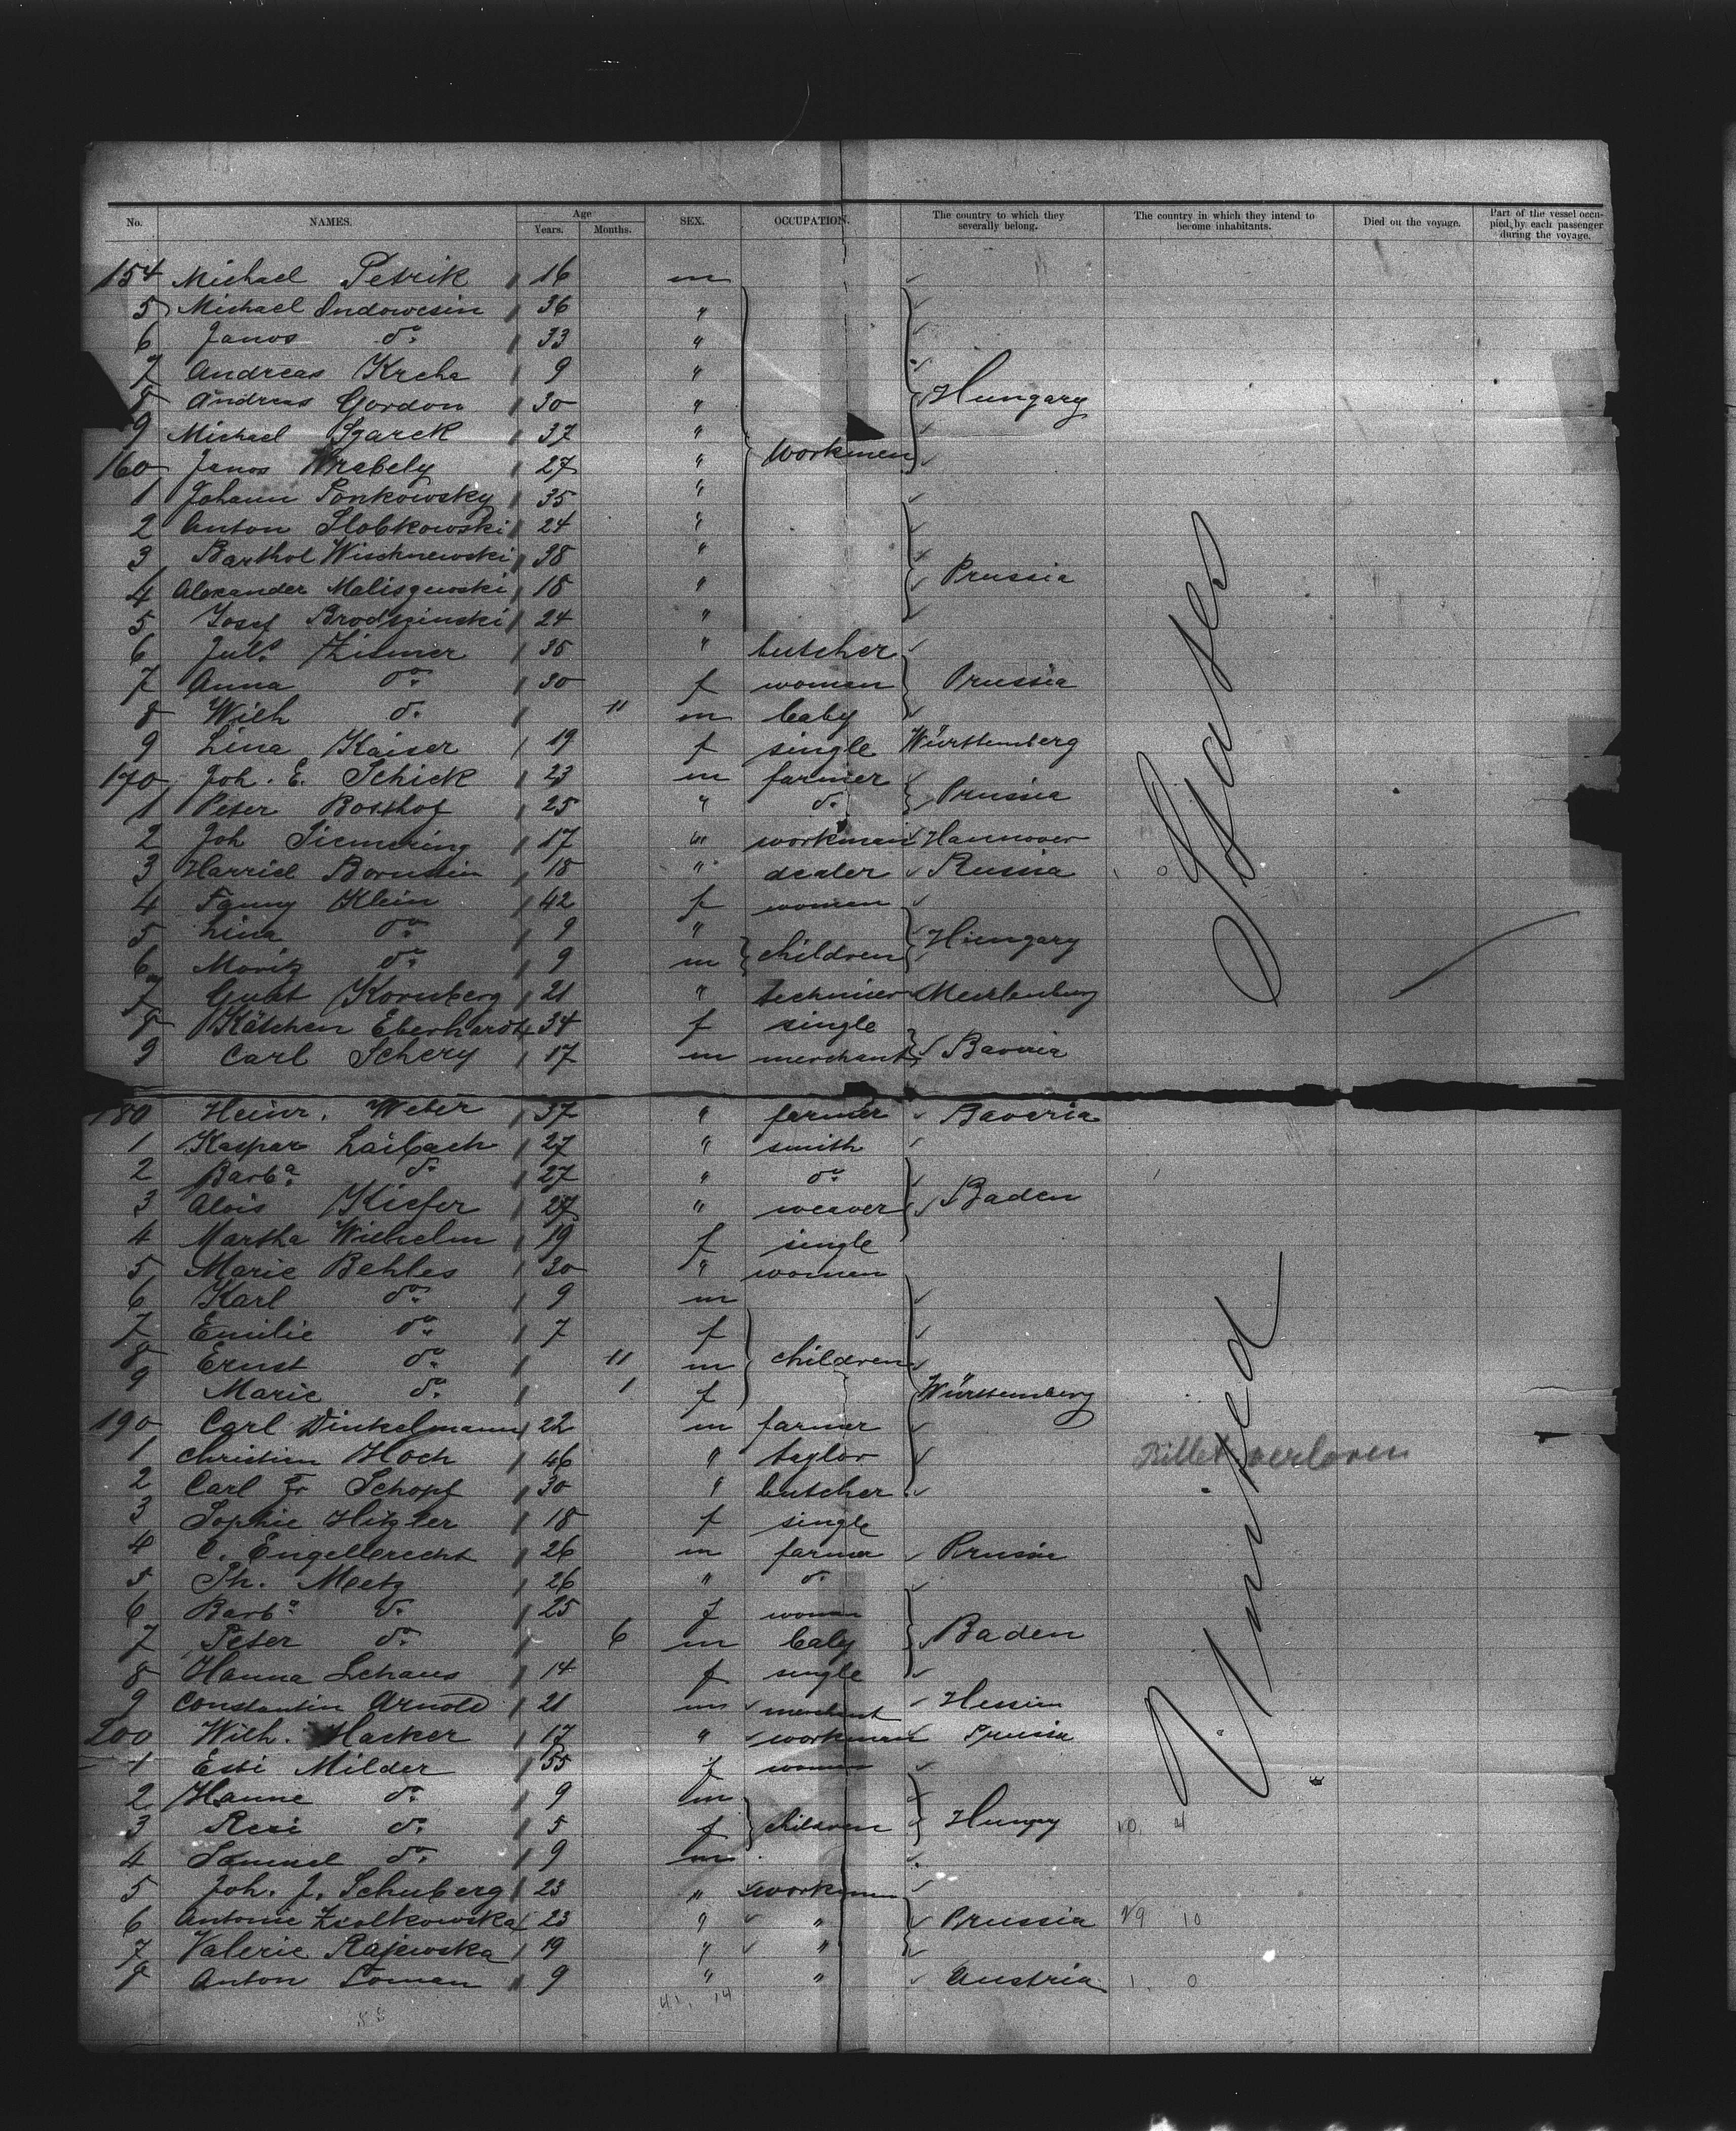 No. NAMES. Age Years. Months. SEX. OCCUPATION. The country to which they severally belong. The country in which they intend to become inhabitants. Died on the voyage. Part of the vessel occupied by each passenger during the voyage.
154 Michael Petrik 16 m
5 Michael 36 "
6 Janos do. 33 "
7 Andreas Kreha 9 "
8 Andreas Gordon 30 " Hungary
9 Michael Sgarek 37 "
160 Janos Wrabely 27 " workmen
1 Johann Ponkowsky 35 "
2 Anton Slobkowski 24 "
3 Barthol Wischnewski 38 "
4 Alexander Malisgewski 18 " Prussia
5 Josef Brodszinski 24 "
6 Juls. Zismer 35 " butcher
7 Anna do. 30 f woman Prussia
8 Wilh do. 11 m baby
9 Lina Kaiser 19 f single Württemberg
170 Joh. E. Schick 23 m farmer Prussia
1 Peter Botthof 25 " do.
2 Joh Siemering 17 " workman Hannover
3 18 " dealer Russia
4 Fanny Klein 42 f women
5 Lina do. 9 " Hungary
6 Moritz do. 9 m children
7 Gust Kornberg 21 " Mecklenburg
8 Kätchen Eberhardt 34 f single
9 Carl Schery 17 m merchant Bavaria
180 Heinr. Weber 37 " farmer Bavaria
1 Kaspar Laibach 27 " smith
2 Barba. do. 27 " do.
3 Alois Kiefer 27 " weaver Baden
4 Martha Wilhelm 19 f single
5 Marie Behles 30 " women
6 Karl do. 9 m
7 Emilie do. 7 f
8 Ernst do. 11 m children
9 Marie do. 1 f Württemberg
190 Carl Dinkelmann 22 m farmer
1 Christian Hoch 46 " taylor Billet verloren
2 Carl Fr Schopf 30 " butcher
3 Sophie Hitzler 18 f single
4 C. Engelbrecht 26 m farmer Prussia
5 Ph. Metz 26 " do.
6 Barba. do. 25 f woman
7 Peter do. 6 m baby Baden
8 Hanna Schaus 14 f single
9 Constantin Arnold 21 m merchant Hessen
200 Wilh. Hacker 17 " workman Prussia
1 Esti Milder 55 f woman
2 Hanne do. 9 m
3 Resi do. 5 f children Hungry 10. 4
4 Samuel do. 9 m
5 Joh. J. Schuberg 23 " workmen
6 Antonie Ziolkowska 23 " " Prussia 29 10
7 Valerie Rajewska 19 " "
8 Anton Toman 9 " " Austria 1. 0
41. 14
United States